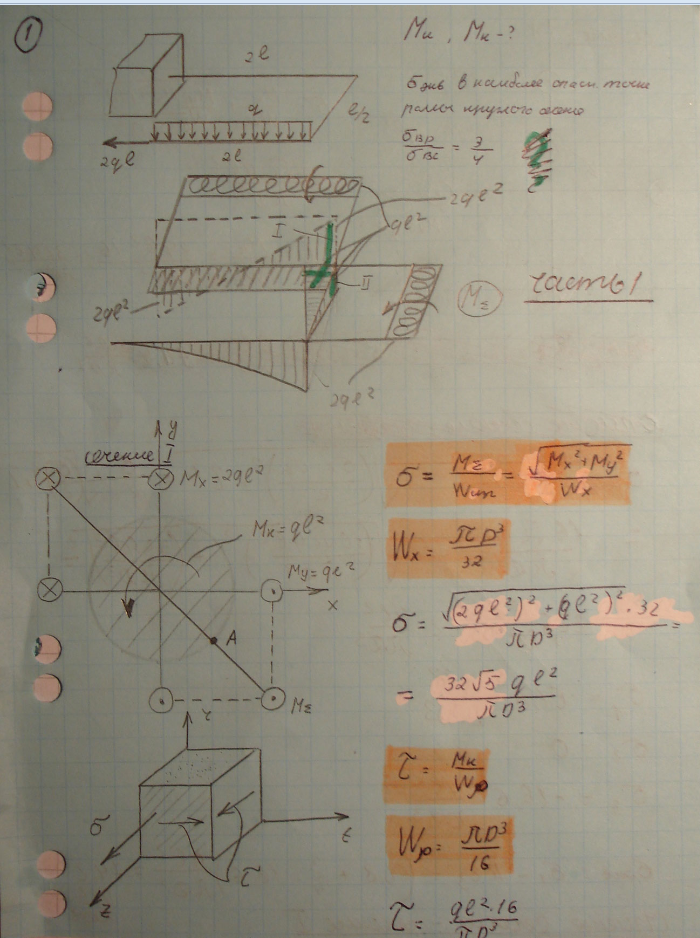 1
Mи , Mк - ?
2l
q
l/2
2ql
2l
σэкв в наиболее опасн. точке
рамы круглого сечения
σвр / σвс = 3/4
2ql²
ql²
I
II
2ql²
2ql²
MΣ
Часть 1
сечение I
y
Mx = 2ql²
Mк = ql²
My = ql²
x
A
MΣ
σ = MΣ / Wизг = √(Mx² + My²) / Wx
Wx = πD³ / 32
σ = √((2ql²)² + (ql²)²) · 32 / πD³ =
= 32√5 ql² / πD³
τ = Mк / Wρ
Wρ = πD³ / 16
τ = ql² · 16 / πD³
σ
τ
z